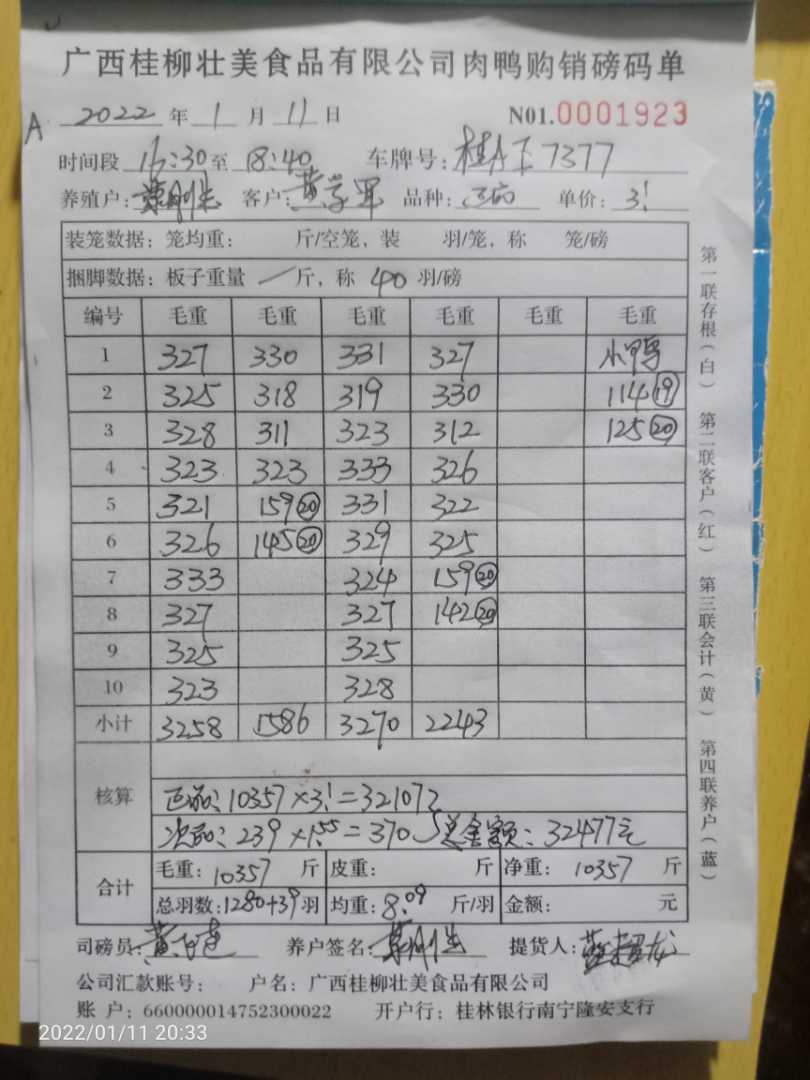 广西桂柳壮美食品有限公司肉鸭购销磅码单
A 2022 年 1 月 11 日 N01.0001923
时间段 16:30 至 18:40 车牌号: 桂A 7377
养殖户: 客户: 黄学军 品种: 正品 单价: 3.1
装笼数据: 笼均重: 斤/空笼, 装 羽/笼, 称 笼/磅
捆脚数据: 板子重量 — 斤, 称 40 羽/磅
编号 毛重 毛重 毛重 毛重 毛重 毛重
1 327 330 331 327 小鸭
2 325 318 319 330 114⑲
3 328 311 323 312 125⑳
4 323 323 333 326
5 321 159⑳ 331 322
6 326 145⑳ 329 325
7 333 324 159⑳
8 327 327 142⑳
9 325 325
10 323 328
小计 3258 1586 3270 2243
核算
正品: 10357×3.1=32107元
次品: 239×1.55=370 总金额: 32477元
合计 毛重: 10357 斤 皮重: 斤 净重: 10357 斤
总羽数: 1280+39 羽 均重: 8.09 斤/羽 金额: 元
司磅员: 养户签名: 提货人:
公司汇款账号: 户名: 广西桂柳壮美食品有限公司
账 户: 660000014752300022 开户行: 桂林银行南宁隆安支行
第一联存根(白) 第二联客户(红) 第三联会计(黄) 第四联养户(蓝)
2022/01/11 20:33